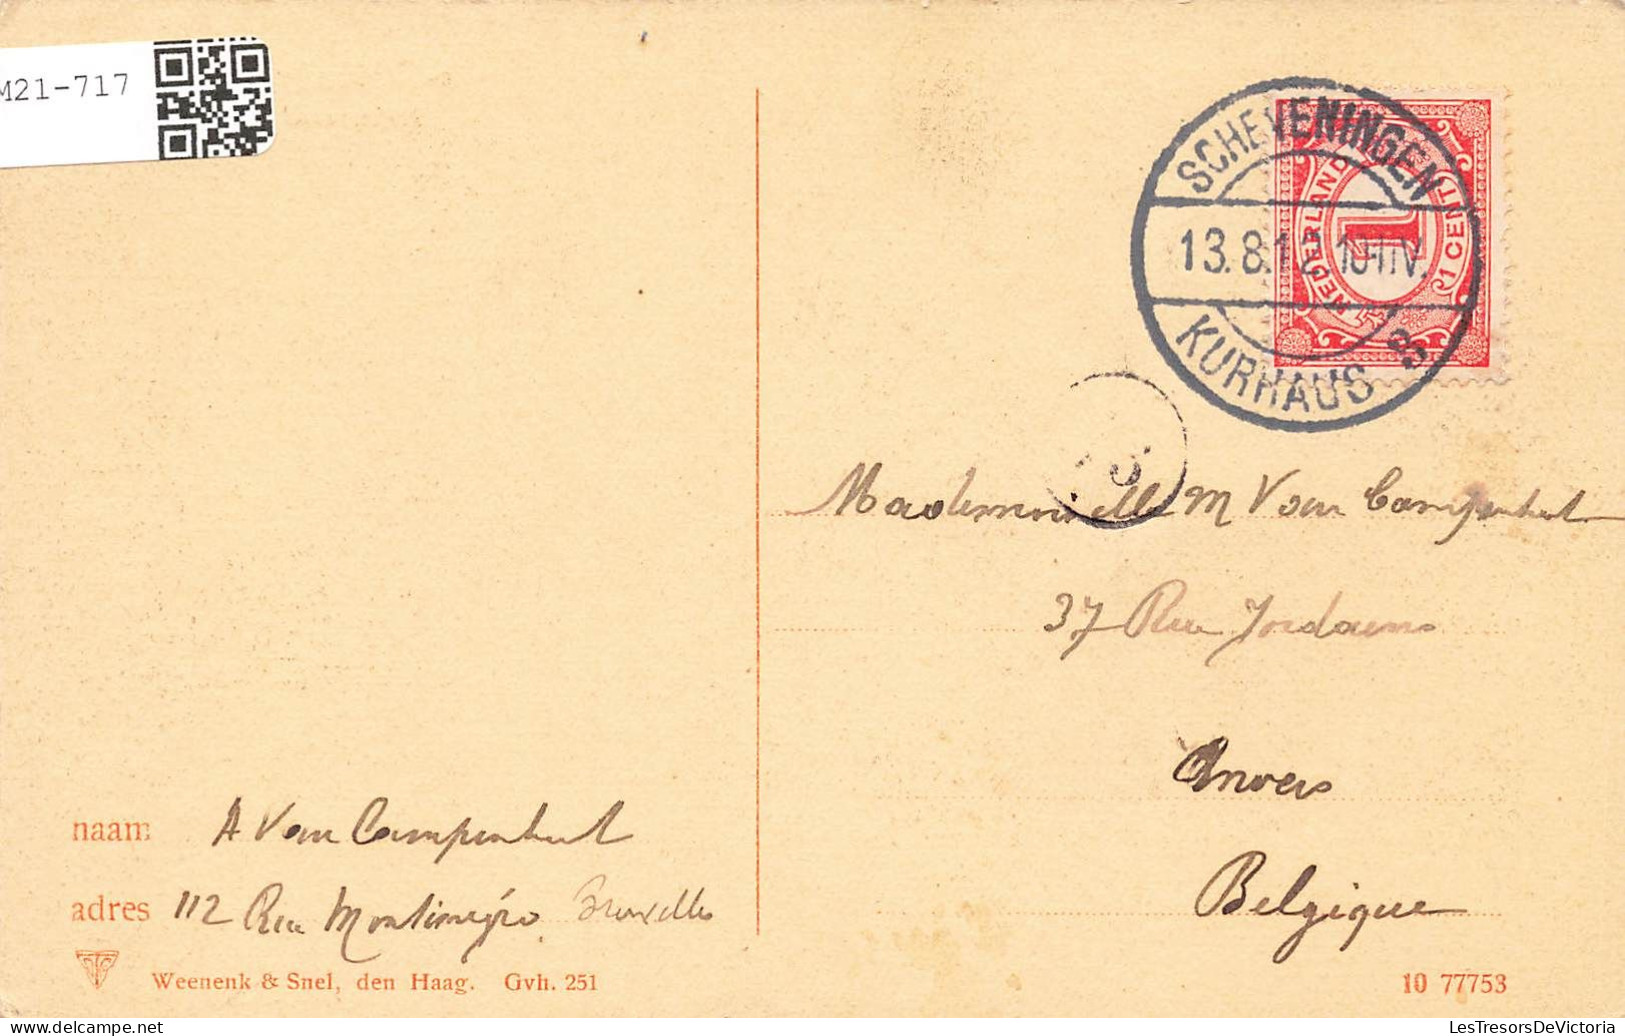 M21-717
SCHEVENINGEN
13.8.12 10-11V.
KURHAUS 3
NEDERLAND
1
1 CENT
Mademoiselle M Van Campenhout
37 Rue Jordaens
Anvers
Belgique
naam A Van Campenhout
adres 112 Rue Montinégro Bruxelles
Weenenk & Snel, den Haag. Gvh. 251
10 77753
LesTresorsDeVictoria
LesTresorsDeVictoria